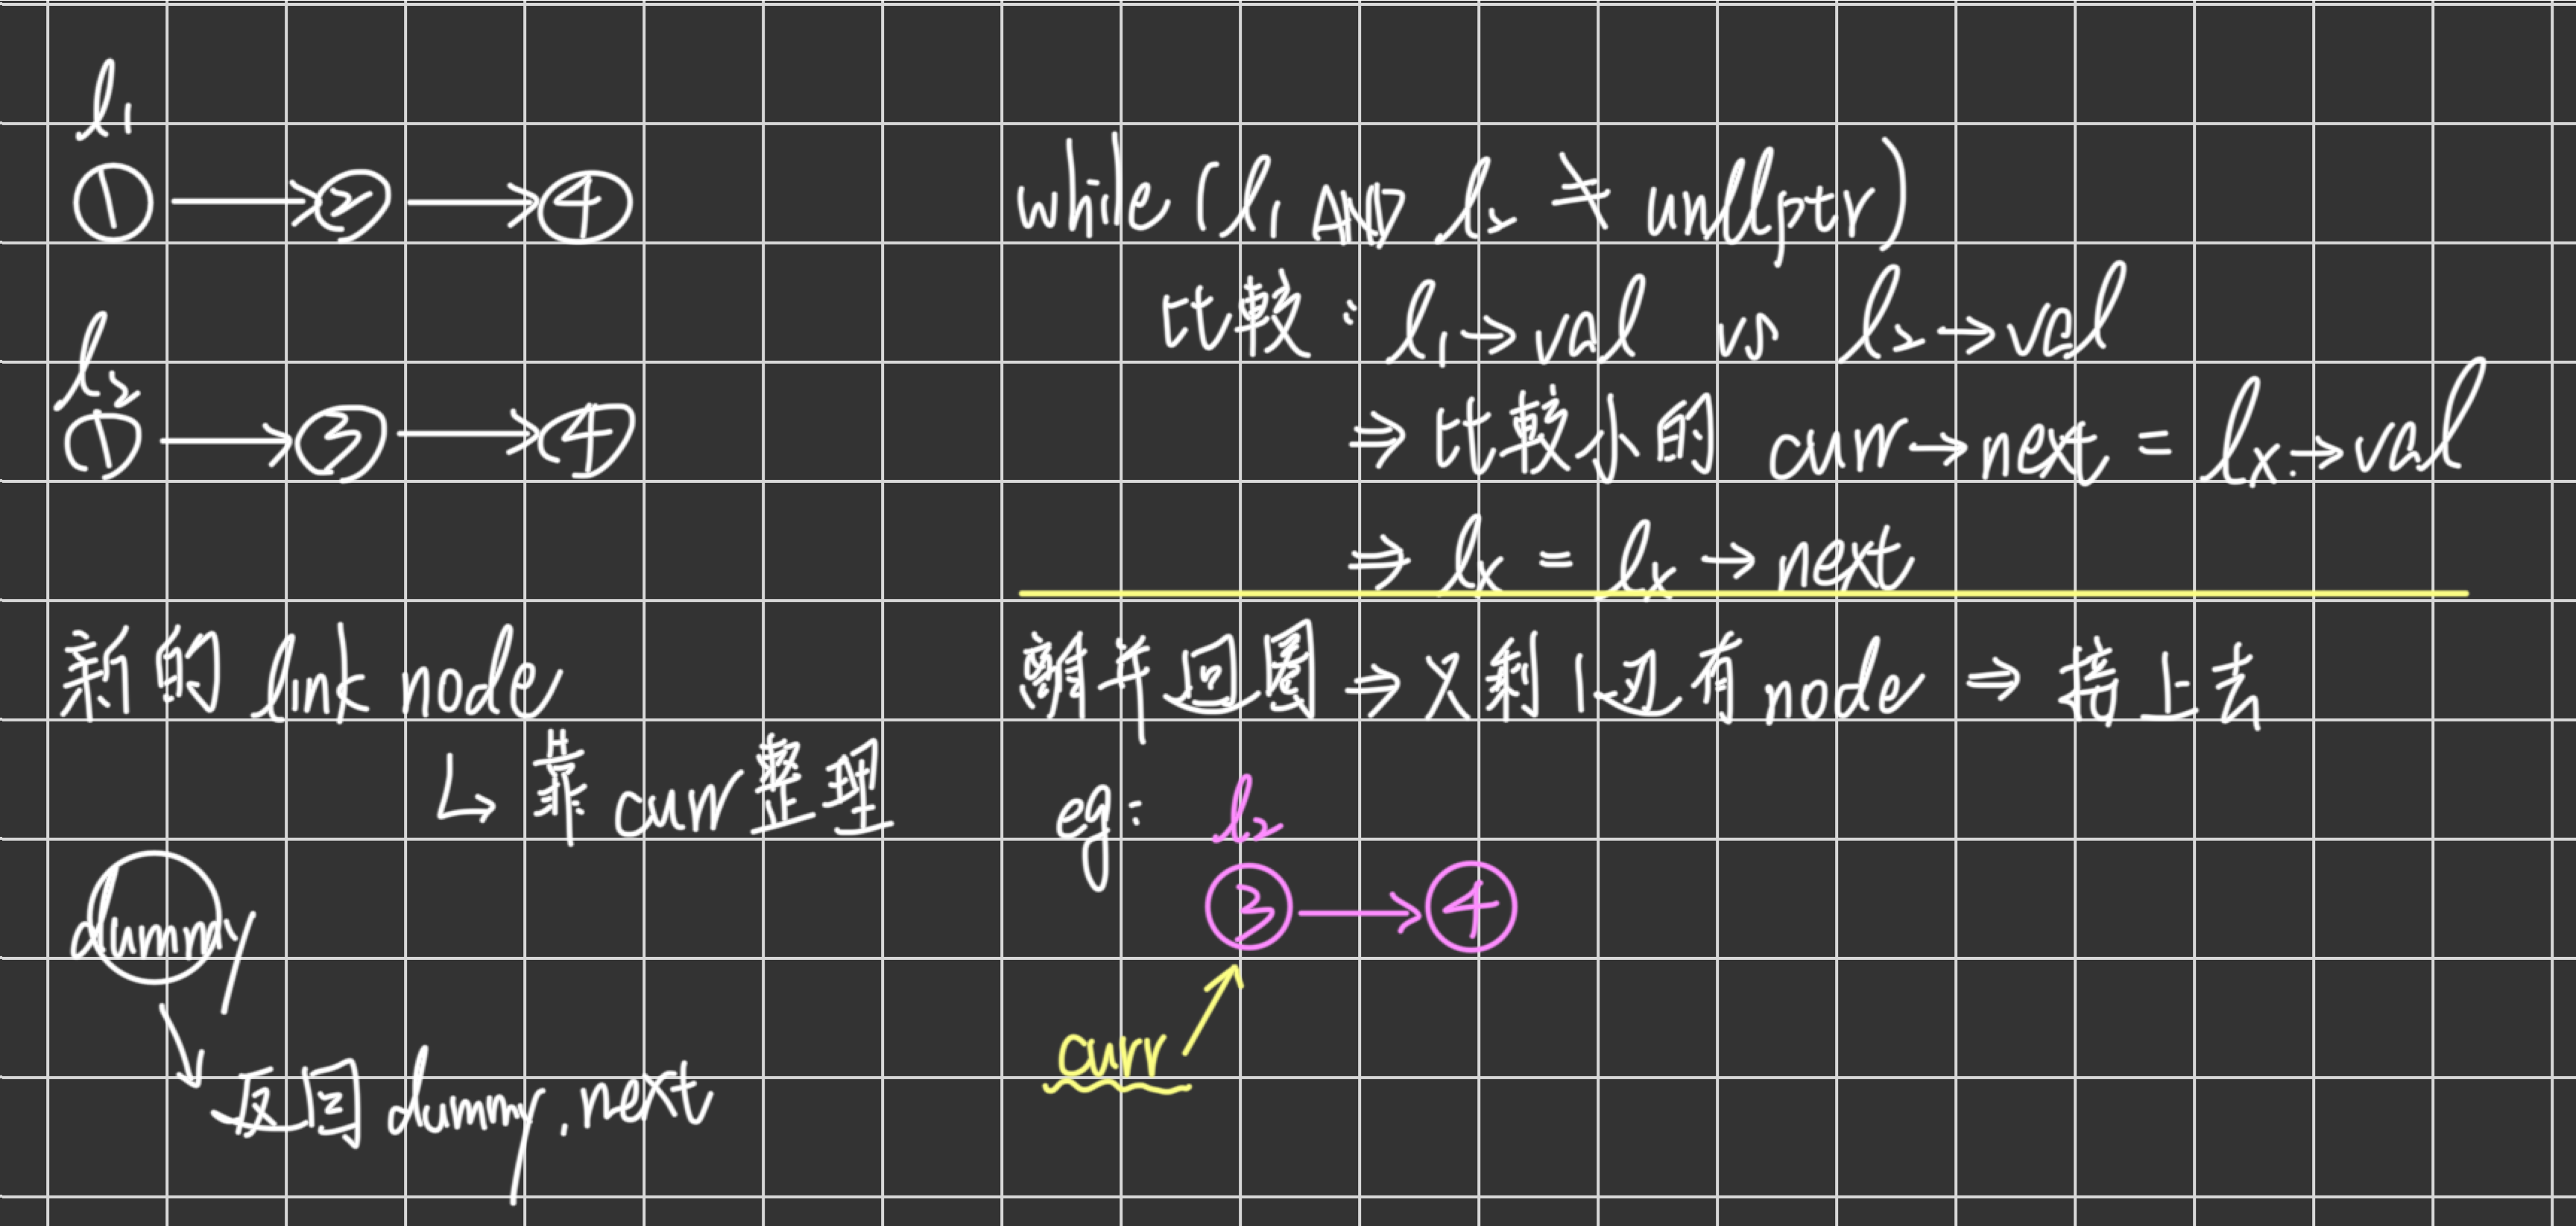 l1
① → ② → ④
l2
① → ③ → ④
新的 link node
↳ 靠 curr 整理
dummy
返回 dummy.next
while (l1 AND l2 ≠ unllptr)
比較：l1→val vs l2→val
⇒ 比較小的 curr→next = lx.→val
⇒ lx = lx→next
離开迴圈 ⇒ 只剩1边有 node ⇒ 接上去
eg:
l2
③ → ④
curr